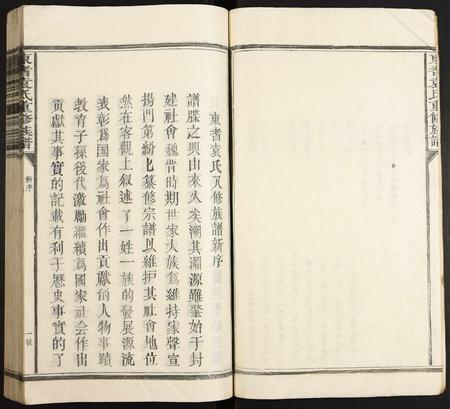 東耆袁氏重修族譜
東耆袁氏八修族譜新序
譜牒之興由來久矣溯其淵源雖肇始于封
建社會魏晋時期世家大族爲維持家聲宣
揚門第紛匕纂修宗譜以維护其社會地位
然在客觀上叙述了一姓一族的發展源流
表彰爲国家爲社會作出貢獻的人物事蹟
教育子孫後代激勵繼續爲國家社会作出
貢獻其事實的記載有利于歷史事實的了
東耆袁氏重修族譜
新序
一號